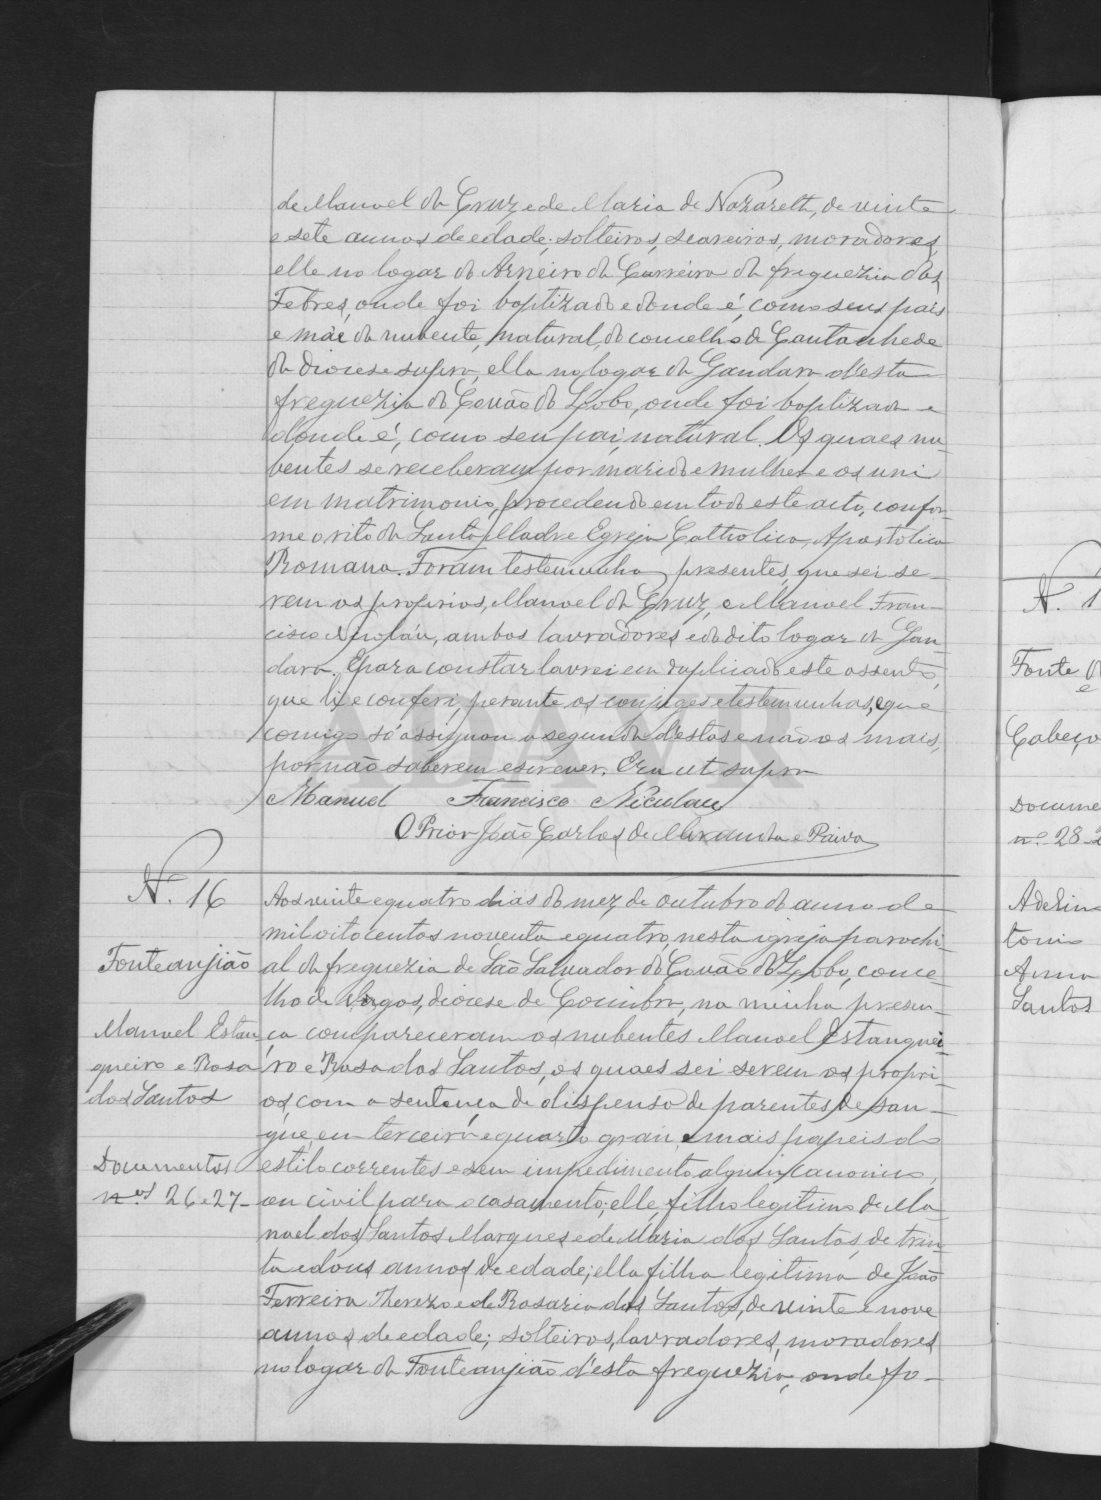 de Manoel da Cruz e de Maria de Nazareth, de vinte
e sete annos de edade; solteiros, seareiros, moradores,
elle no logar do Arneiro da Carreira da freguezia das
Febres, onde foi baptizado e donde é, como seus pais
e mãe da nubente, natural, do concelho de Cantanhede
da diocese supra, ella no logar da Gandara d'esta
freguezia do Covão do Lobo, onde foi baptizada e
donde é, como seu pai, natural. Os quaes nu-
bentes se receberam por marido e mulher e os uni
em matrimonio, procedendo em todo este acto, confor-
me o rito da Santa Madre Egreja Catholica, Apostolica
Romana. Foram testemunhas presentes, que sei se-
rem os proprios, Manoel da Cruz, e Manoel Fran-
cisco Nicoláu, ambos lavradores, e do dito logar da Gan-
dara. E para constar lavrei em duplicado este assento,
que li, e conferi, perante os conjuges e testemunhas, e que
comigo só assignou a segunda d'estas e não os mais,
por não saberem escrever. Era ut supra
Manuel Francisco Niculau
O Prior João Carlos de Miranda e Paiva
N.º 16
Fonteanjião
Manoel Estan-
queiro e Rosa
dos Santos
Documentos
nos 26 e 27-
Aos vinte e quatro dias do mez de outubro do anno de
mil oitocentos noventa e quatro, nesta igreja parochi-
al da freguezia de São Salvador do Covão do Lobo, conce-
lho de Vagos, diocese de Coimbra, na minha presen-
ça compareceram os nubentes Manoel Estanquei-
ro e Rosa dos Santos, os quaes sei serem os propri-
os, com a sentença de dispensa de parentes de san-
gue, em terceiro e quarto grau, e mais papeis do
estilo correntes e sem impedimento algum, canonico,
ou civil para o casamento; elle, filho legitimo de Ma-
noel dos Santos Marques e de Maria dos Santos, de trin-
ta e dous annos de edade; ella filha legitima de João
Ferreira Therezo e de Rosaria dos Santos, de vinte e nove
annos de edade; solteiros, lavradores, moradores
no logar da Fonteanjião d'esta freguezia, onde fo-
N. 1
Fonte d
e
Cabeço
Docume
nº 28
Adelin
tonio
Anna
Santos
ADAVR